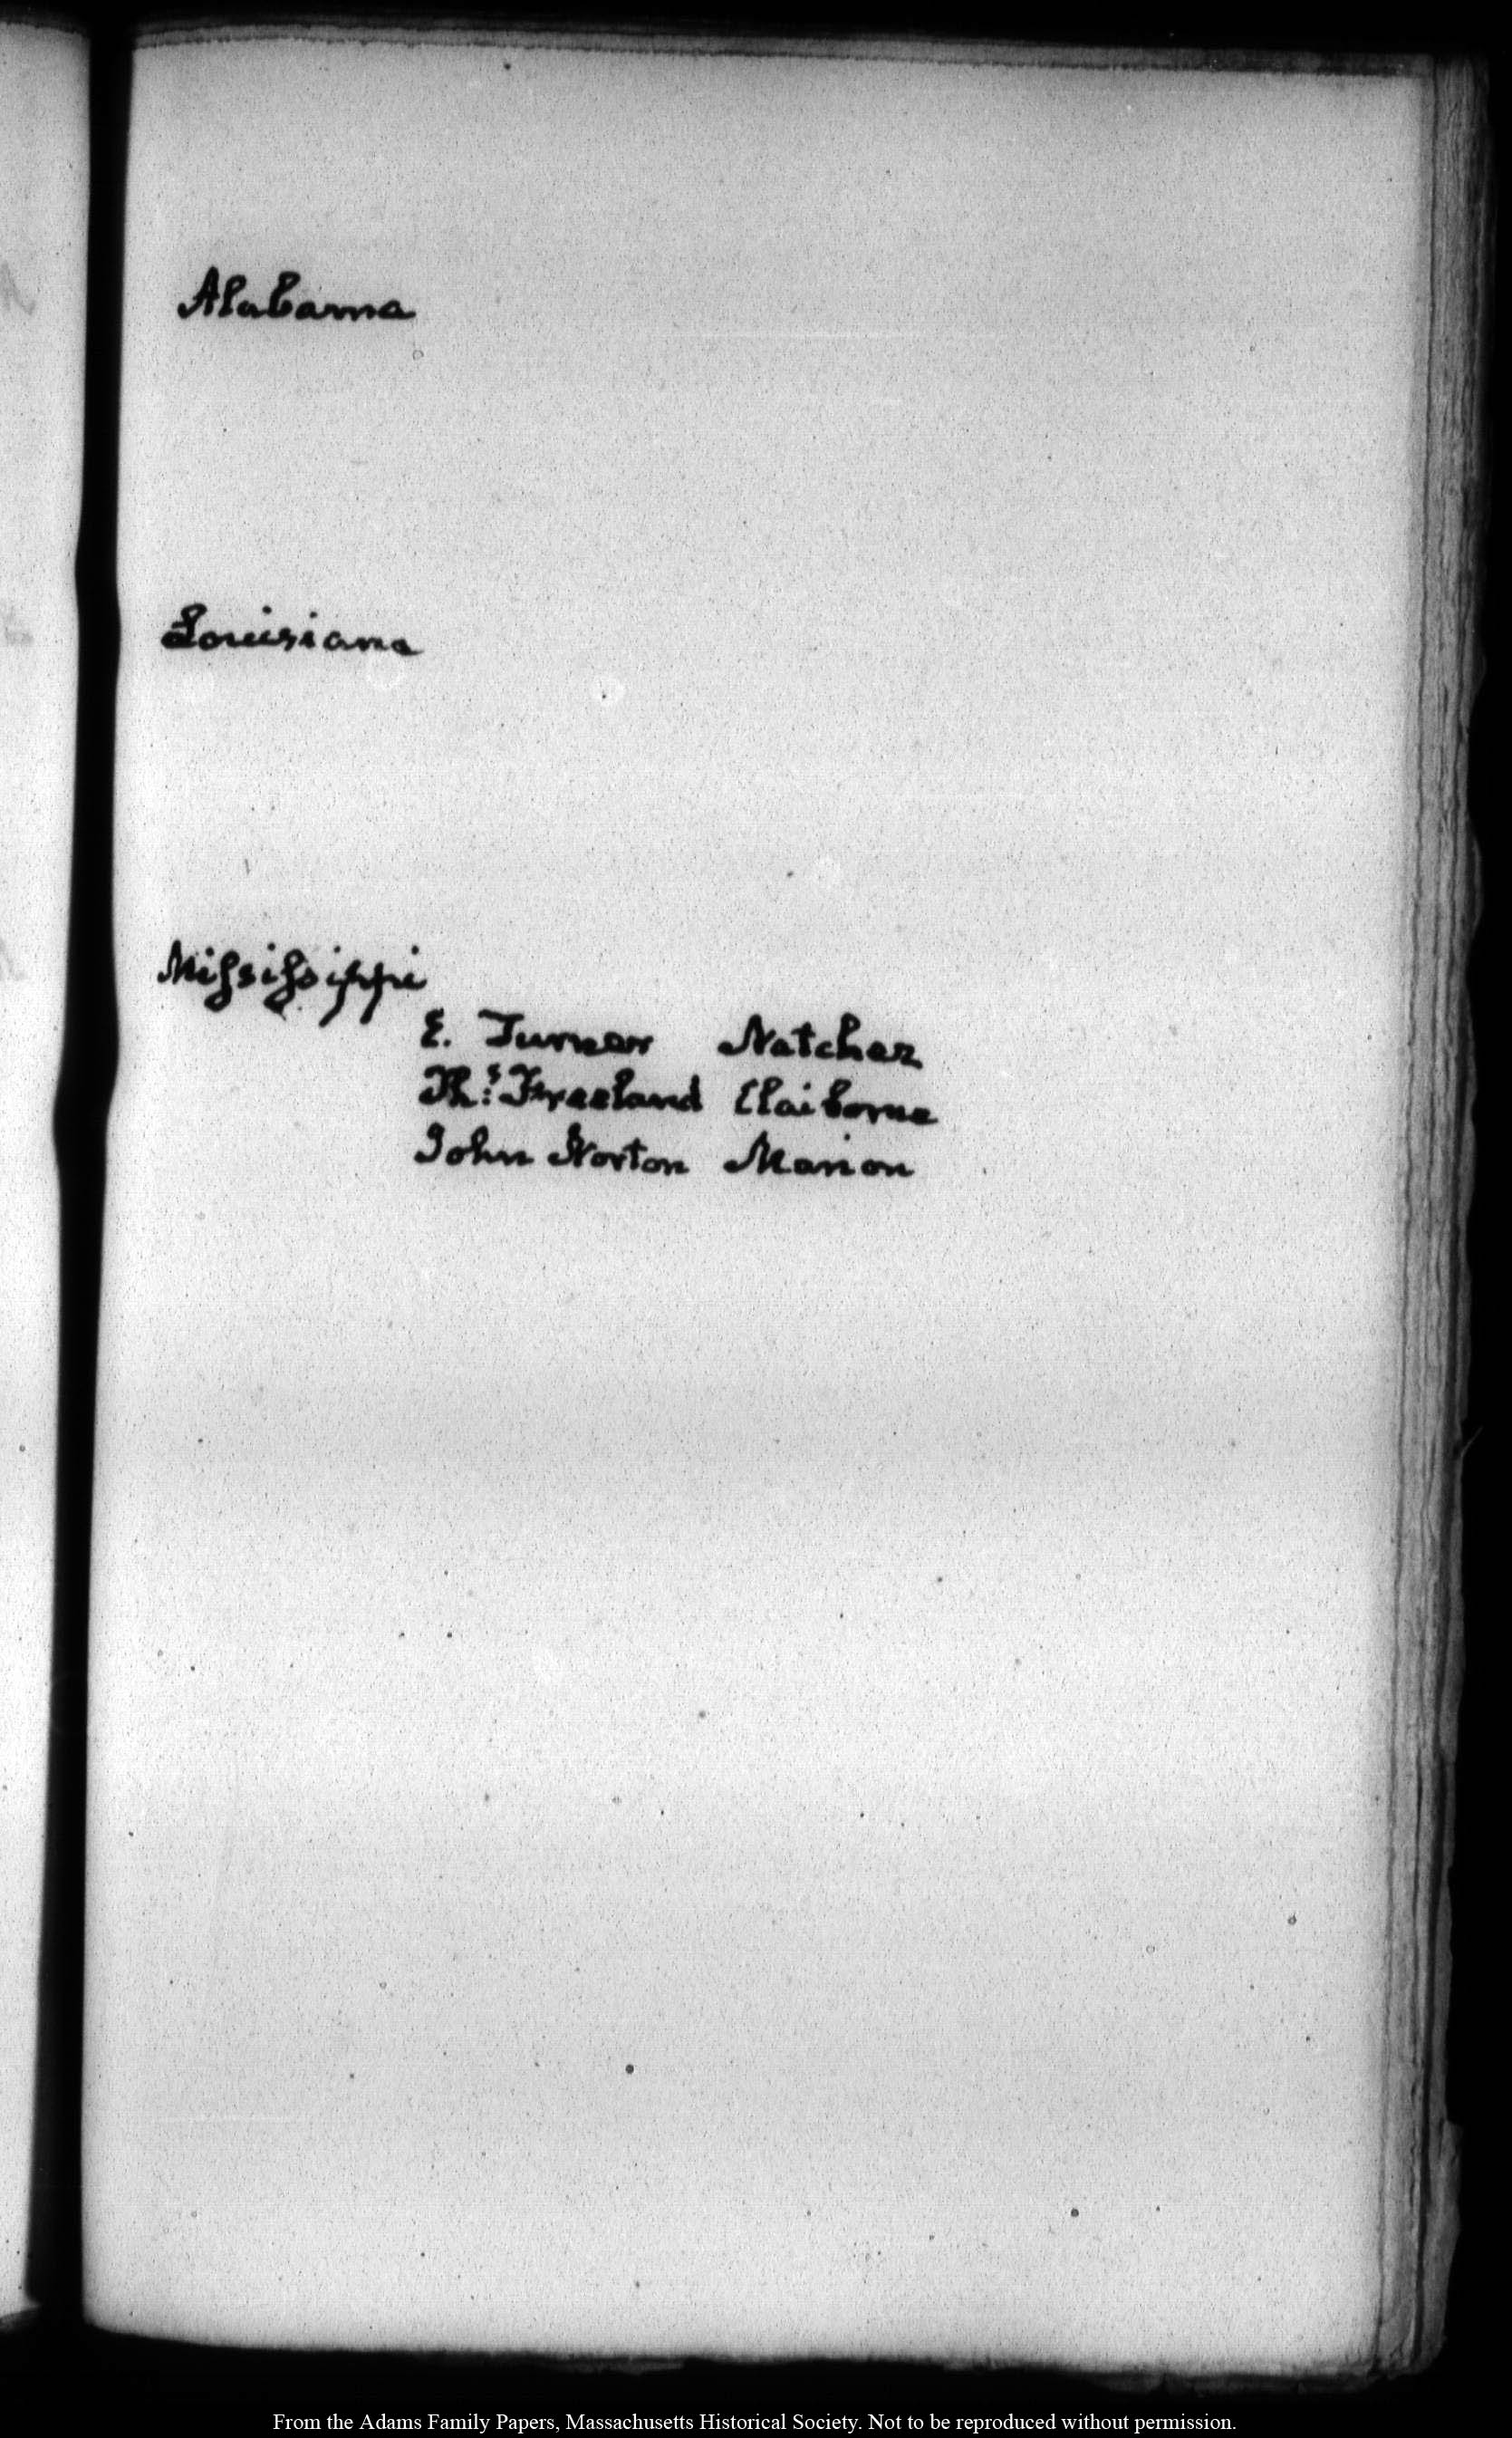 Alabama
Louisiana
Mississippi
E. Turner Natchez
Ths. Freeland Claiborne
John Norton Marion
From the Adams Family Papers, Massachusetts Historical Society. Not to be reproduced without permission.